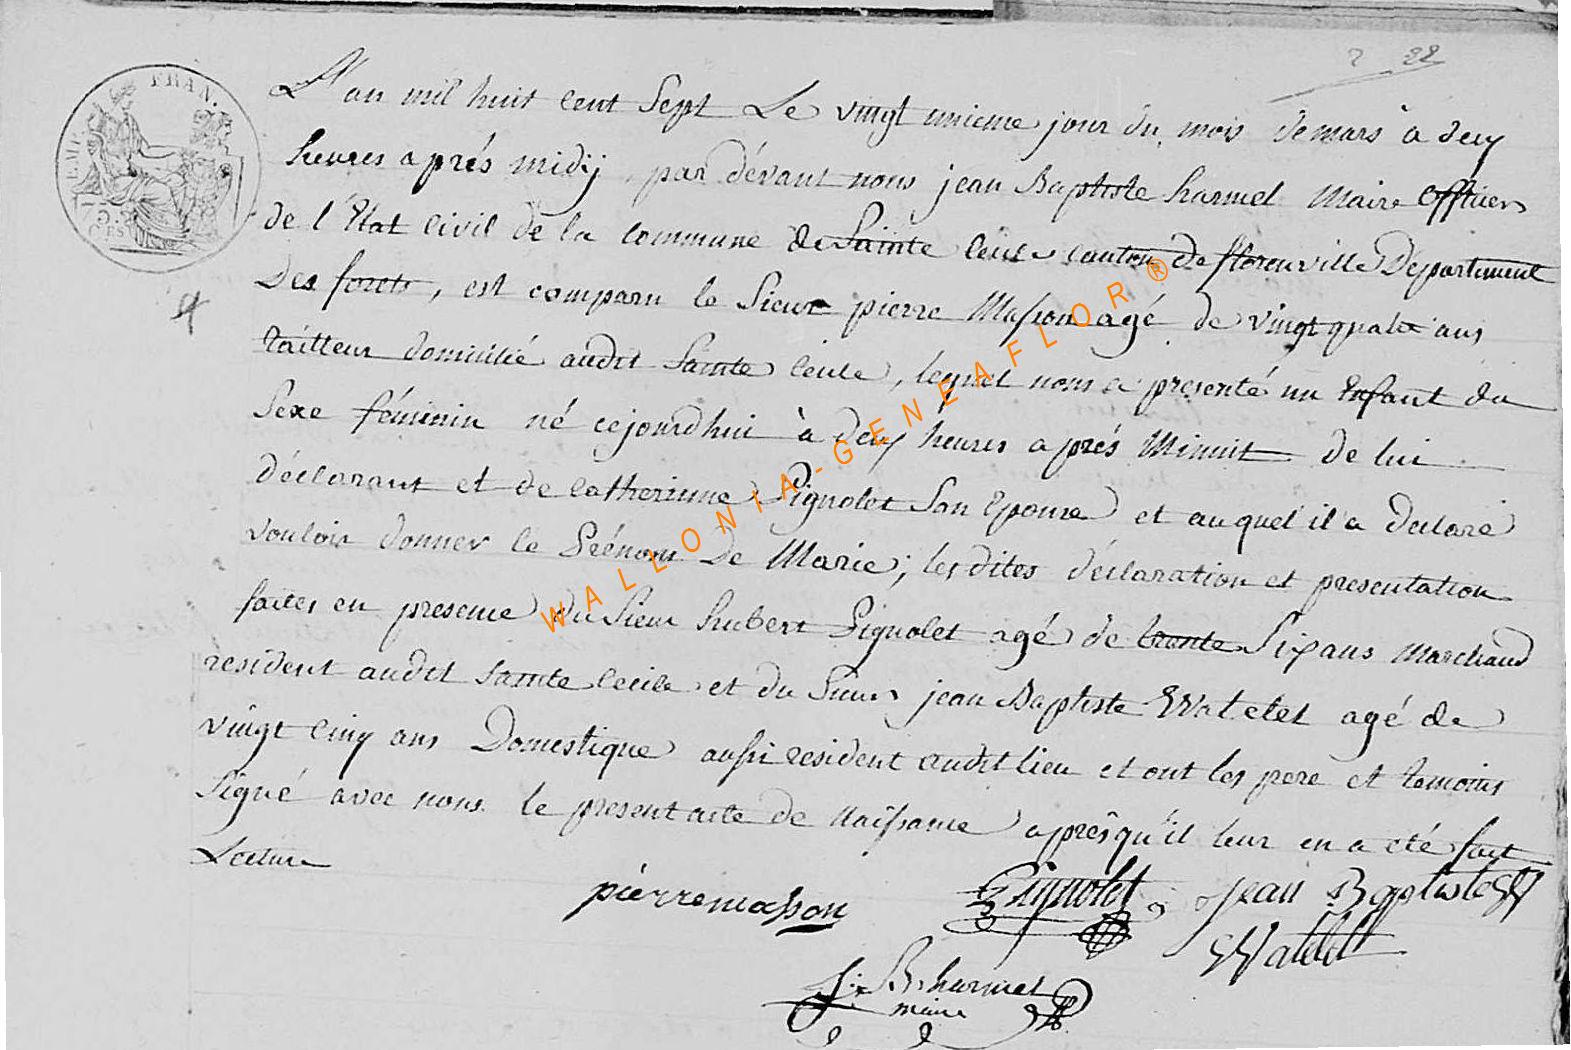 2 22
EMP. FRAN.
75. CES
L'an mil huit cent Sept Le vingt unieme jour du mois de mars à deux
heures aprés midij par dévant nous jean Baptiste harmel Maire officier
de l'Etat Civil de la commune de Sainte Cecile canton de florenville Departement
Des forets, est comparu le Sieur pierre Masson agé de vingt quatre ans
tailleur domicilié audit Sainte Cecile, lequel nous a presenté un Enfant du
Sexe féminin né cejourdhui à deux heures aprés Minuit de lui
déclarant et de Catherinne Pignolet Son Epouse et auquel il a declaré
vouloir donner le Prénom De Marie; les dites déclaration et presentation
faites en presence du Sieur hubert Pignolet agé de trente Six ans Marchand
resident audit Sainte Cecile et du Sieur jean Baptiste Watelet agé de
vingt Cinq ans Domestique aussi resident audit lieu et ont les pere et temoins
Signé avec nous le present acte de Naissance aprésqu'il leur en a été fait
Lecture
pierre masson Pignolet Jean Baptiste
Watelet
J. B. harmel
maire
WALLONIA-GENEAFLOR®